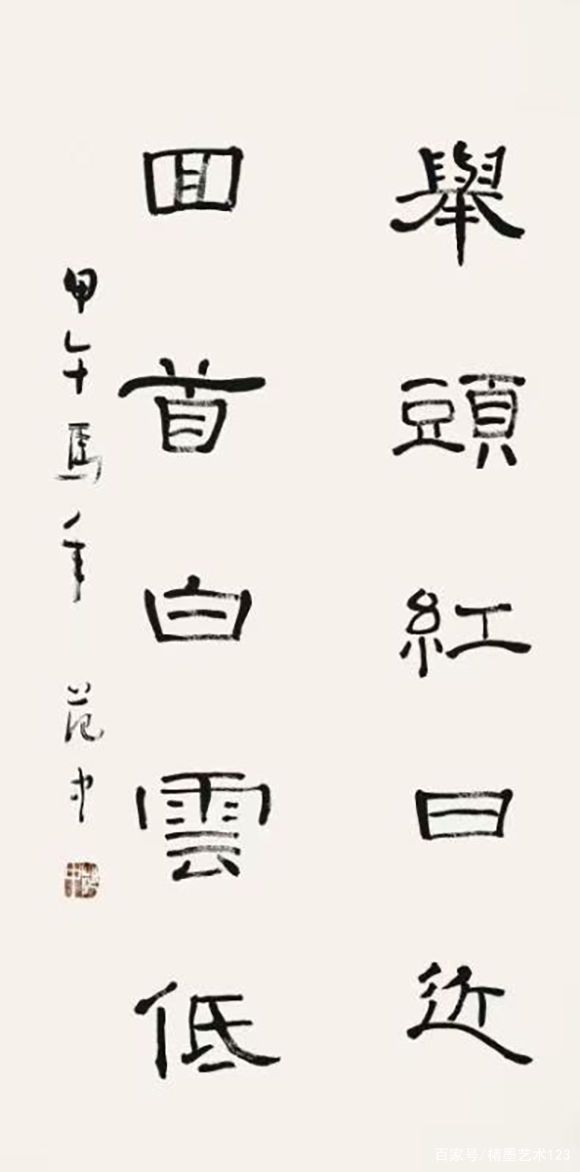 舉頭紅日近
回首白雲低
甲午馬年 范
百家号/精墨艺术123